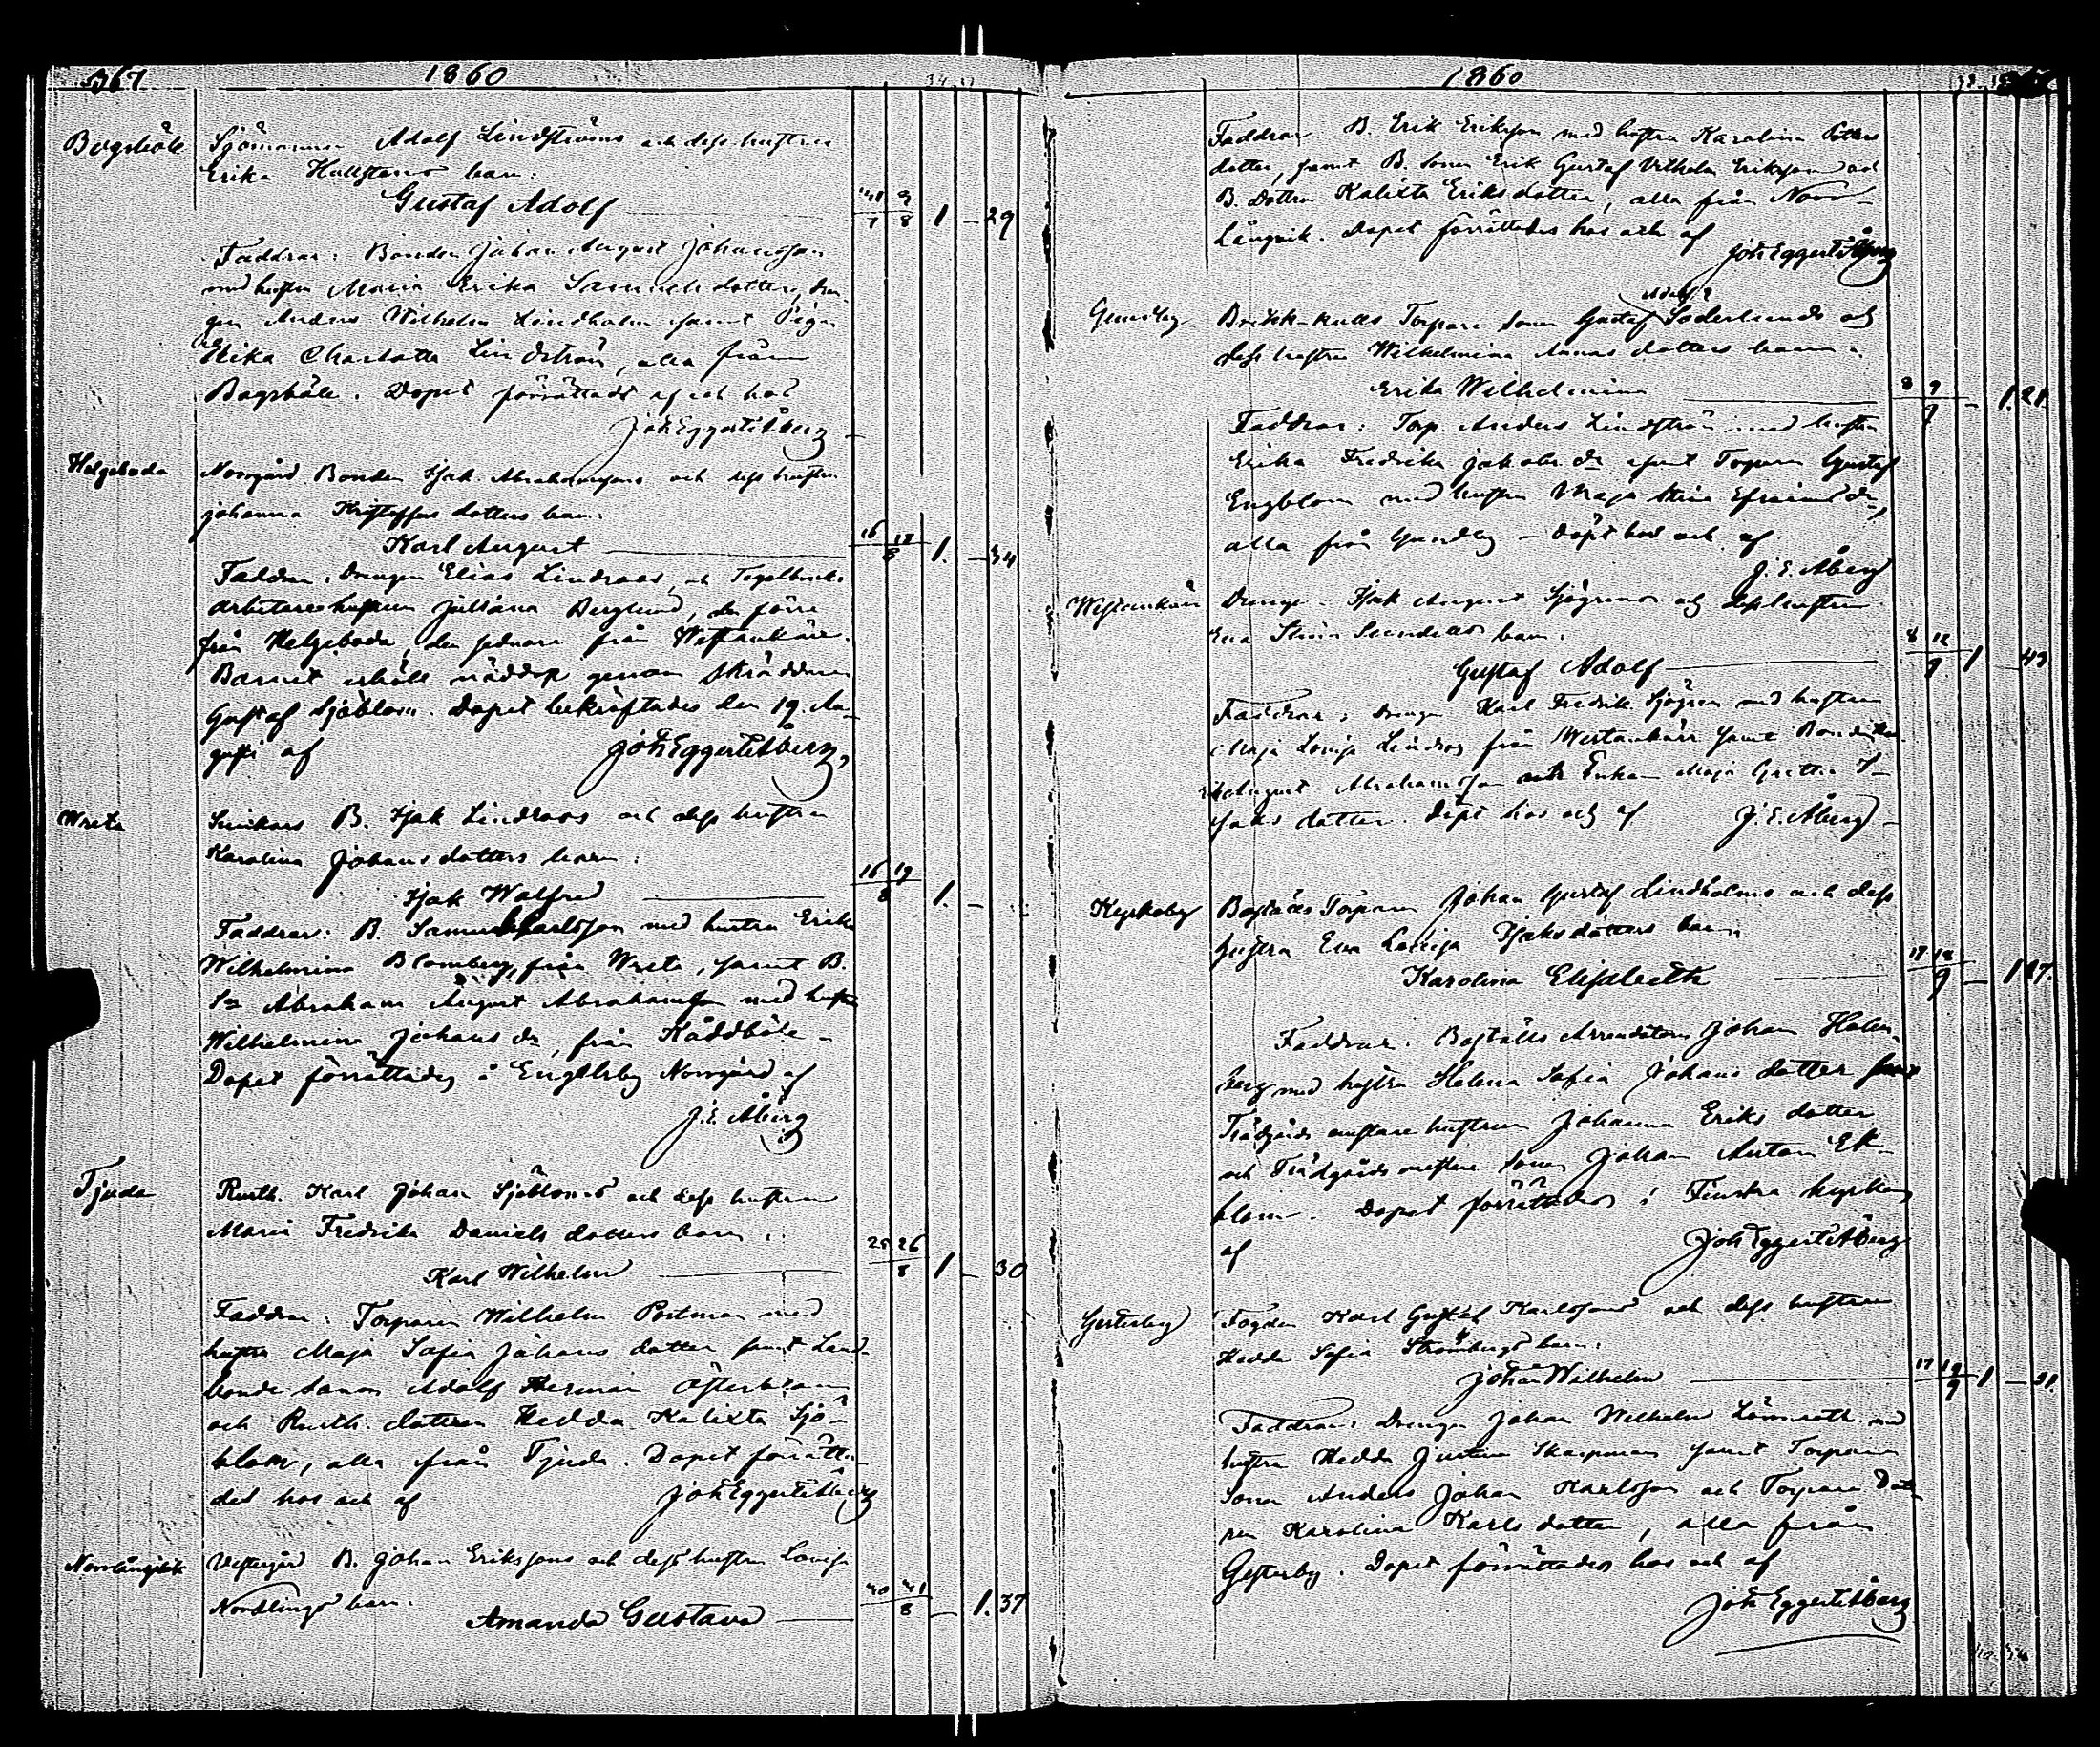 367 1860
Bogsböle Sjömannen Adolf Lindströms och dess hustru
Erika Hallstens barn:
Gustaf Adolf 31/7 9/8 1 – 29
Faddrar: Bonden Johan August Johansson
med hustru Maria Erika Samuelsdotter, drän-
gen Anders Wilhelm Lindholm samt Pigan
Erika Charlotta Lindström, alla från
Bogsböle. Dopet förrättadt af och hos
Joh Eggert Åberg
Helgeboda Norrgård Bonden Isak Abrahamssons och dess hustru
Johanna Kristoffersdotters barn:
Karl August 16 18/8 1. – 34
Faddrar: Drängen Elias Lindroos och Tegelbruks
arbetarehustrun Juliana Berglund, den förre
från Helgeboda, den sednare från Westankärr.
Barnet erhöll nöddop genom Skräddaren
Gustaf Sjöblom. Dopet bekräftades den 19. Au-
gusti af Joh Eggert Åberg,
Wreta B. Isak Lindroos och dess hustru
Karolina Johansdotters barn:
Isak Walfred 16 19/8 1. –
Faddrar: B. Samuel Karlsson med hustru Erika
Wilhelmina Blomberg, från Wreta, samt B.
Sn Abraham August Abrahamsson med hustru
Wilhelmina Johansdr, från Kåddböle –
Dopet förrättades i Engelsby Norrgård af
J. E. Åberg
Tjuda Rusth. Karl Johan Sjöbloms och dess hustrun
Maria Fredrika Danielsdotters barn:
Karl Wilhelm 25 26/8 1 – 30
Faddrar: Torparen Wilhelm Portman med
hustru Maja Sofia Johansdotter samt Land-
bonde sonen Adolf Herman Österblom
och Rusth. dottren Hedda Kalixta Sjö-
blom, alla från Tjuda. Dopet förrätta-
des hos och af Joh Eggert Åberg
Norrlångvik Vestergård B. Johan Erikssons och dess hustru Lovisa
Nordlings barn.
Amanda Gustava 30 31/8 – 1. 37
1860
Faddrar: B. Erik Eriksson med hustru Karolina Petters
dotter, samt B. Sonen Erik Gustaf Vilhelm Eriksson och
B. Dottren Kalixta Eriksdotter, alla från Norr-
Långvik. Dopet förrättades hos och af
Joh Eggert Åberg
Adolf?
Gundby Torpare Sonen Gustaf Söderlunds och
dess hustru Wilhelmina Annasdotters barn:
Erika Wilhelmina 8 9/9 – 1. 21.
Faddrar: Torp. Anders Lindström med hustru
Erika Fredrika Jakobsdr samt Torparen Gustaf
Engblom med hustru Maja Stina Efraimsdr,
alla från Gundby – döpt hos och af
J. E. Åberg
Westankärr Drängen Isak August Sjögrens och dess hustru
Eva Stina Sundells barn:
Gustaf Adolf 8 12/9 1 – 43
Faddrar: Drängen Karl Fredrik Sjögren med hustrun
Maja Lovisa Lindroos från Westankärr samt Bonden
August Abrahamsson och Enkan Maja Gretta I-
saksdotter. Döpt hos och af J. E. Åberg –
Kyrkoby Boställes Torparen Johan Gustaf Lindholms och dess
hustru Eva Lovisa Isaksdotters barn
Karolina Elisabeth 17 18/9 – 1 27.
Faddrar: Boställs Arrendatorn Johan Holm-
berg med hustru Helena Sofia Johansdotter samt
Trädgårdsmästare hustrun Johanna Eriksdotter
och Trädgårdsmästare sonen Johan Anton Ek-
blom. Dopet förrättades i kyrkan
af Joh Eggert Åberg
Gesterby Fogden Karl Gustaf Karlssons och dess hustrun
Hedda Sofia Strömbergs barn:
Johan Wilhelm 17 19/9 1 – 31.
Faddrar: Drängen Johan Wilhelm Lönnroth med
hustru Hedda Justina Skarpman samt Torpare
Sonen Anders Johan Karlsson och Torpare Dott
ren Karolina Karlsdotter, alla från
Gesterby. Dopet förrättades hos och af
Joh Eggert Åberg